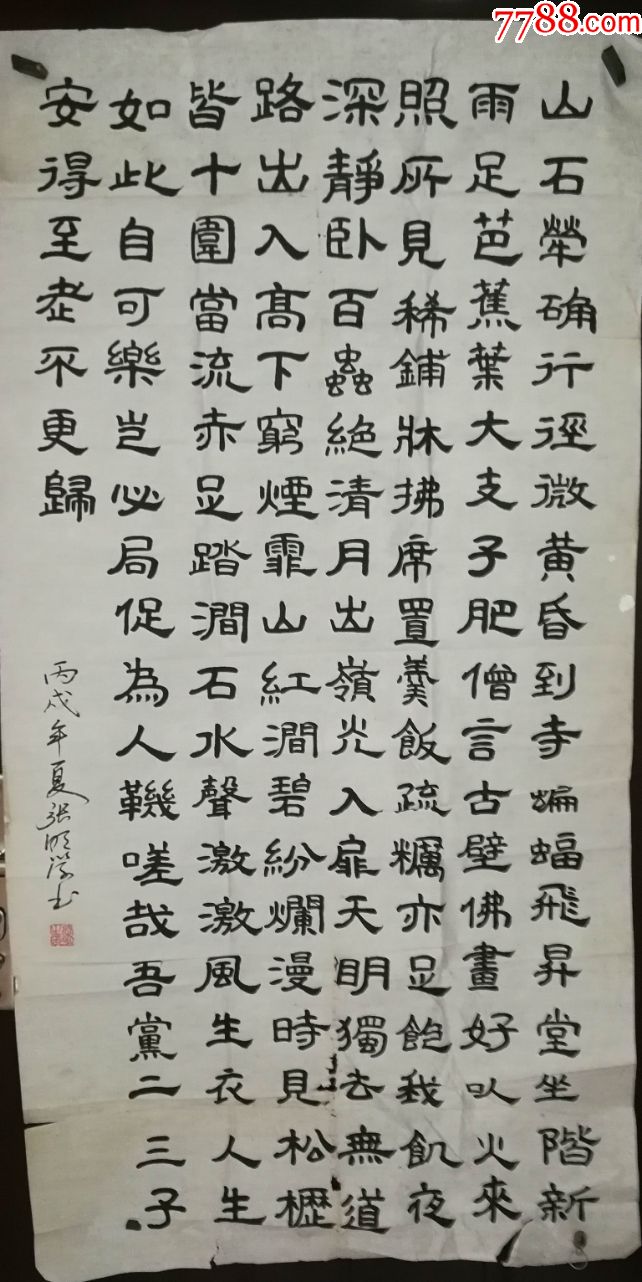 7788.com
山石犖确行徑微黃昏到寺蝙蝠飛昇堂坐階新
雨足芭蕉葉大支子肥僧言古壁佛畫好以火來
照所見稀鋪牀拂席置羹飯疏糲亦足飽我飢夜
深靜臥百蟲絕清月出嶺光入扉天明獨去無道
路出入高下窮煙霏山紅澗碧紛爛漫時見松櫪
皆十圍當流赤足踏澗石水聲激激風生衣人生
如此自可樂豈必局促為人鞿嗟哉吾黨二三子
安得至老不更歸
丙戌年夏张明学书